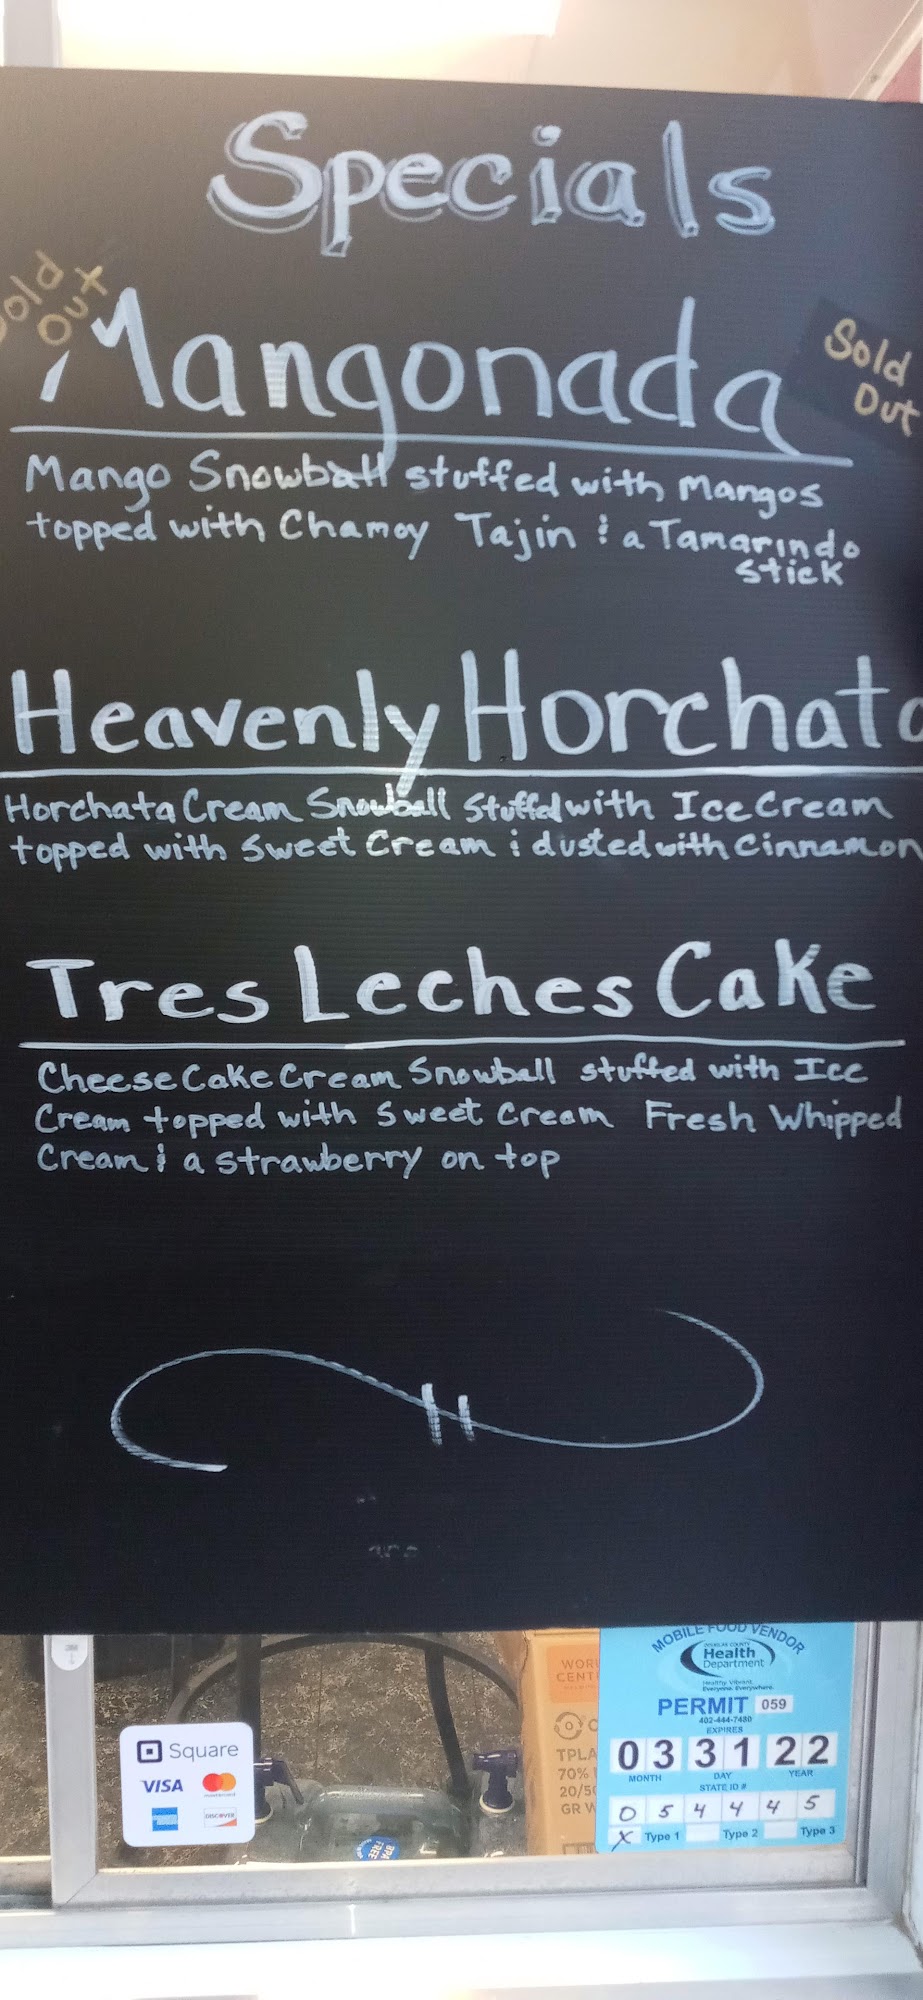 Specials
Sold
Out
Mangonada
Sold
Out
Mango Snowball stuffed with Mangos
topped with Chamoy Tajin & a Tamarindo
stick
Heavenly Horchata
Horchata Cream Snowball Stuffed with Ice Cream
topped with Sweet Cream & dusted with Cinnamon
Tres Leches Cake
Cheese Cake Cream Snowball stuffed with Ice
Cream topped with Sweet Cream Fresh Whipped
Cream & a strawberry on top
MOBILE FOOD VENDOR
Health
Department
Healthy. Vibrant.
Everyone. Everywhere.
PERMIT 059
402-444-7480
EXPIRES
03 31 22
MONTH DAY YEAR
STATE ID #
0 5 4 4 4 5
X Type 1 Type 2 Type 3
Square
VISA
mastercard
DISCOVER
BPA
FREE
CENT
TPLA
70%
20/5
GR W